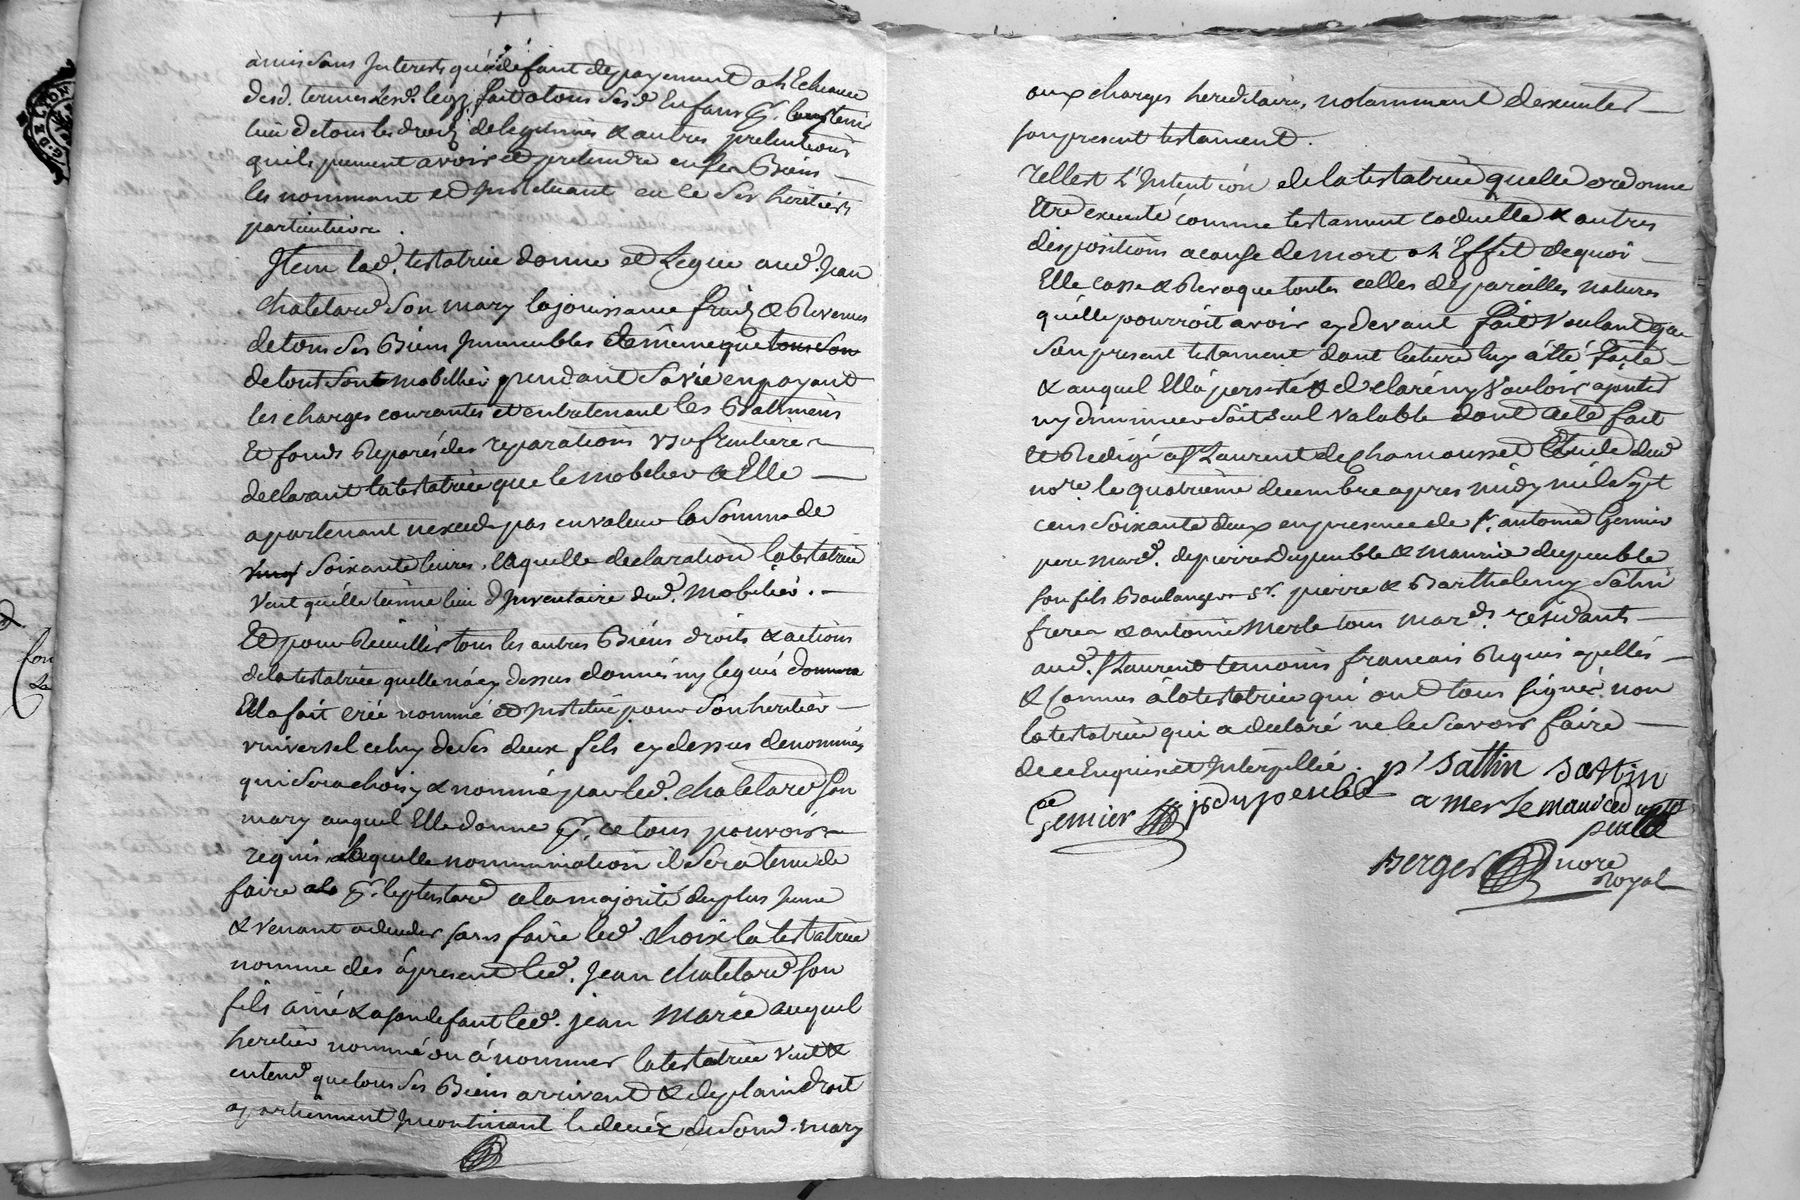 amis sans Interests qu'à deffaut de payement a l'Echeance
desd. termes Lesd. legz fait a tous sesd. Enfans pr. leurs tenir
lieu de tous les droits de legitimes & autres pretentions
quils peuvent avoir et pretendre en ses Biens
les nommant et Instituant en ce Ses heritiers
particuliers.
Item lad. testatrice donne et Legue aud. Jean
Chatelard son mary la jouissance fruits & Revenus
de tous ses Biens Immeubles de même que tous son
de tout sont mobillier pendant sa vie en payant
les charges courantes et entretenant les Batimens
Et fonds Reparés des reparations Usufruitieres
declarant la testatrice que le mobelier a Elle
apartenant nexcede pas en valeur la Somme de
vingt Soixante livres, laquelle declaration la testatrice
veut qu'elle tienne lieu d'Inventaire dud. mobilier.
Et pour Recuillir tous les autres Biens droits & actions
de la testatrice quelle n'a cy dessus donnés ny legués donnera
Elle a fait créé nommé et Institué pour Son heritier
universel celuy de ses deux fils cy dessus denommés
qui sera choisy & nommé par led. Chatelard son
mary auquel Elle donne pr. ce tous pouvoirs
requis laquelle nommination il sera tenu de
faire pr. le plus tard a la majorité du plus Jeune
& venant a deceder sans faire led. choix la testatrice
nomme des à present led. Jean Chatelard son
fils ainé & a son deffaut led. jean Marie auquel
heritier nommé ou à nommer la testatrice veut &
entend que tous ses Biens arrivent & de plain droit
apartiennent Incontinant le decéz de Sond. mary
aux charges hereditaires, notamment dexecuter
son present testament.
Telle est L'Intention de la testatrice quelle ordonne
Etre executé comme testament codicille & autres
dispositions a cause de mort a L'Effet de quoi
Elle casse & Revoque toutes celles de pareilles natures
quelle pourroit avoir cy devant fait voulant que
son present testament dont lecture luy a été faite
& auquel Ella persisté & declaré ny vouloir ajouter
ny diminuer soit seul valable dont acte fait
Et Redigé a St Laurent de Chamousset Etude dud
nore. le quatrième decembre apres midy mil sept
cens soixante deux en presence de Sr. antoine Gernier
pere mard. de pierre dupeuble & Maurice dupeuble
son fils Boulangers Sr. pierre & Barthelemy Satin
freres & antoine Merle tous mards. residants
aud. St Laurent temoins francois Requis apellés
& Connus a la testatrice qui ont tous signé. non
la testatrice qui a declaré ne le scavoir faire
de ce Enquise et Interpellée. p' Sattin Sattin
Gernier p dupeuble a Merle maurice du
peuble
Berger nore
Royal